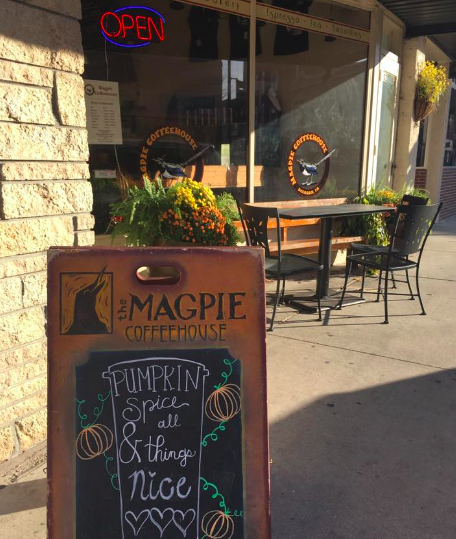 OPEN
Espresso - Tea - Smoothies
MAGPIE COFFEEHOUSE
MAGPIE COFFEEHOUSE
the MAGPIE
COFFEEHOUSE
PUMPKIN
Spice
all
& things
nice